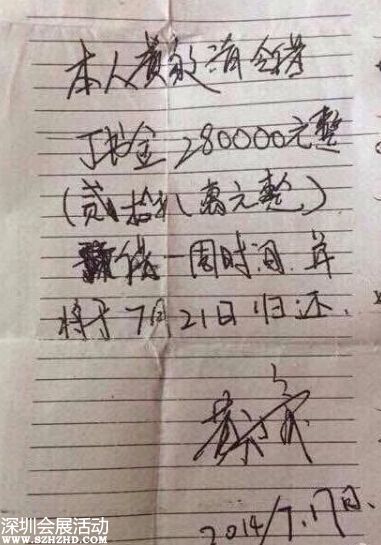 本人黄
金280000元整
(贰拾八萬元整)
借一周时间.并
将于7月21日归还.
黄
2014/7.17日.
深圳会展活动
WWW.SZHZHD.COM